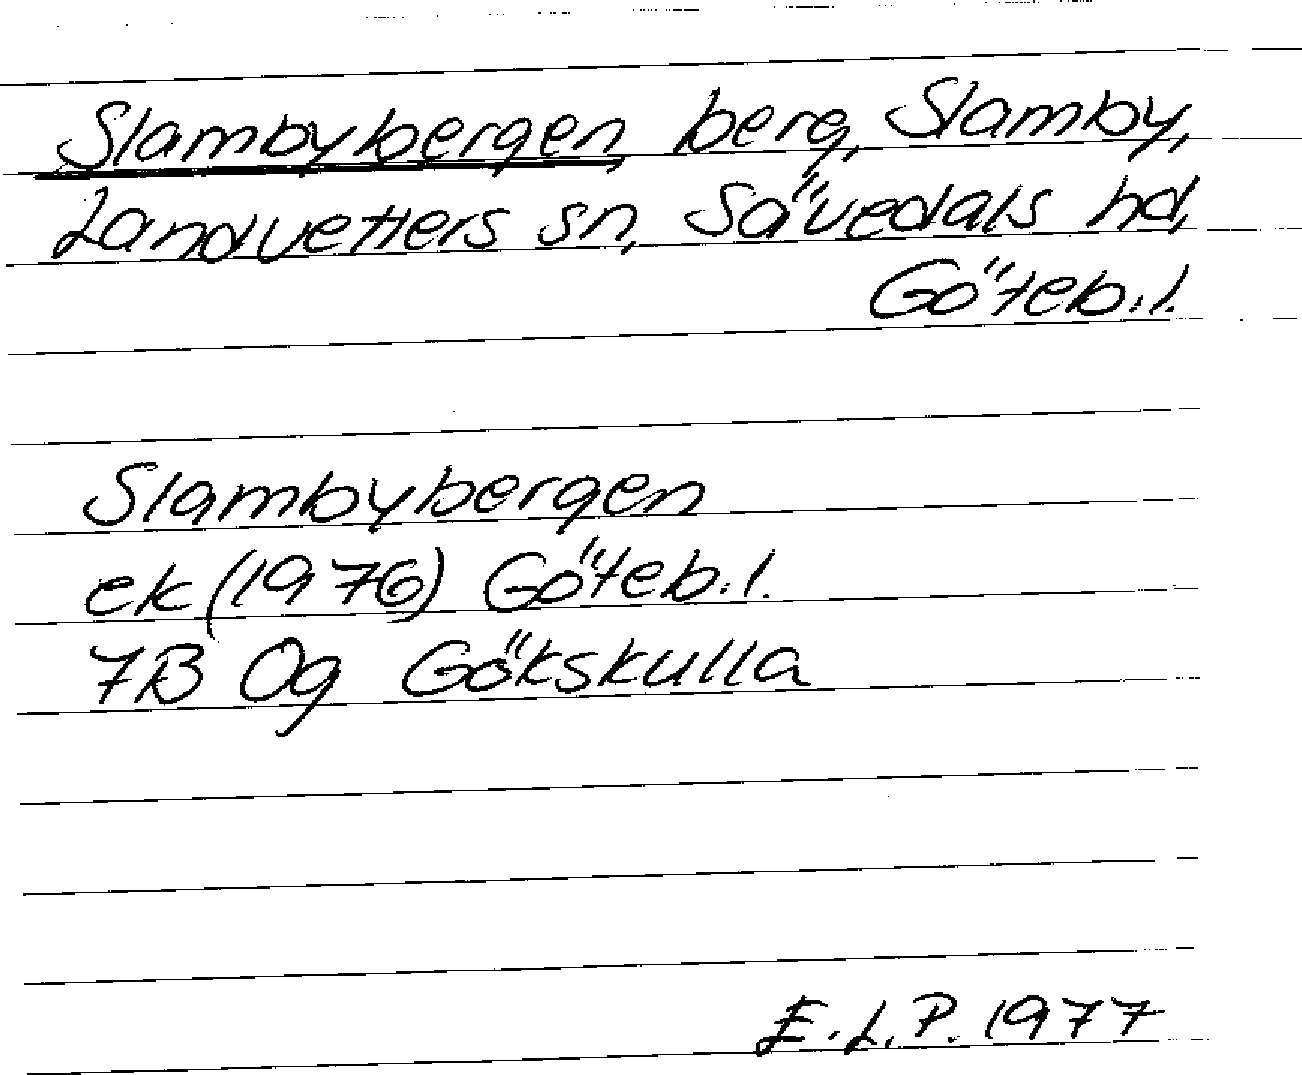 Slambybergen berg, Slamby,
Landvetters sn, Sävedals hd,
Göteb.l.
Slambybergen
ek (1976) Göteb.l.
7B 0g Gökskulla
E.L.P. 1977